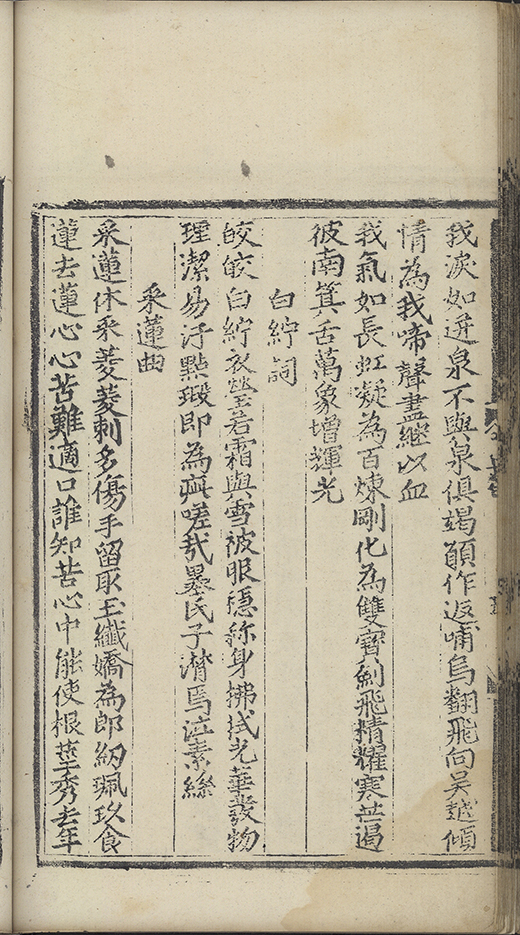 我淚如迸泉不與泉俱竭願作返哺烏翻飛向吳越傾
情為我啼聲盡繼以血
我氣如長虹凝為百煉剛化為雙寶劍飛精耀寒芒遏
彼南箕舌萬象增輝光
白紵詞
皎皎白紵衣瑩若霜與雪被服穩稱身拂拭光華發物
理潔易汙點瑕即為疵嗟哉墨氏子潸焉泣素絲
采蓮曲
采蓮休采菱菱刺多傷手留取玉纖嬌為郎紉珮玖食
蓮去蓮心心苦難適口誰知苦心中能使根莖秀去年